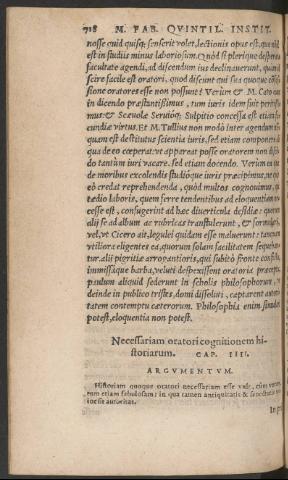 718 M. FAB. QVINTIL. INSTIT.
nosse quid quisq; senserit volet, lectionis opus est, quo nihil
est in studiis minus laboriosum. Quòd si plerique desperata
facultate agendi, ad discendum ius declinauerunt, quam id
scire facile est oratori, quod discunt qui sua quoque confes
sione oratores esse non possunt? Verùm & M. Cato cum
in dicendo præstantißimus, tum iuris idem fuit peritissi
mus: & Scæuolæ Seruióq; Sulpitio concessa est etiam fa-
cundiæ virtus. Et M. Tullius non modò inter agendum nun
quam est destitutus scientia iuris, sed etiam componere ali
qua de eo cœperat: vt appareat posse oratorem non discen
do tantùm iuri vacare, sed etiam docendo. Verùm ea quæ
de moribus excolendis studióque iuris præcipimus, ne quis
eò credat reprehendenda, quòd multos cognouimus, qui
tædio laboris, quem ferre tendentibus ad eloquentiam ne-
cesse est, confugerint ad hæc diuerticula desidiæ: quorum
alij se ad album ac rubricas transtulerunt, & formularij,
vel, vt Cicero ait, leguleij quidam esse maluerunt: tanquam
vtiliora eligentes ea, quorum solam facilitatem sequeban-
tur. alij pigritiæ arrogantioris, qui subitò fronte conficta,
immissáque barba, veluti despexissent oratoria præcepta,
paulum aliquid sederunt in scholis philosophorum, vt
deinde in publico tristes, domi dissoluti, captarent autori-
tatem contemptu cæterorum. Philosophia enim simulari
potest, eloquentia non potest.
Necessariam oratori cognitionem hi-
storiarum. CAP. IIII.
ARGVMENTVM.
Historiam quoque oratori necessariam esse
rum etiam fabulosam: in qua tamen antiquitatis &
ioresit autoritas.
In pri